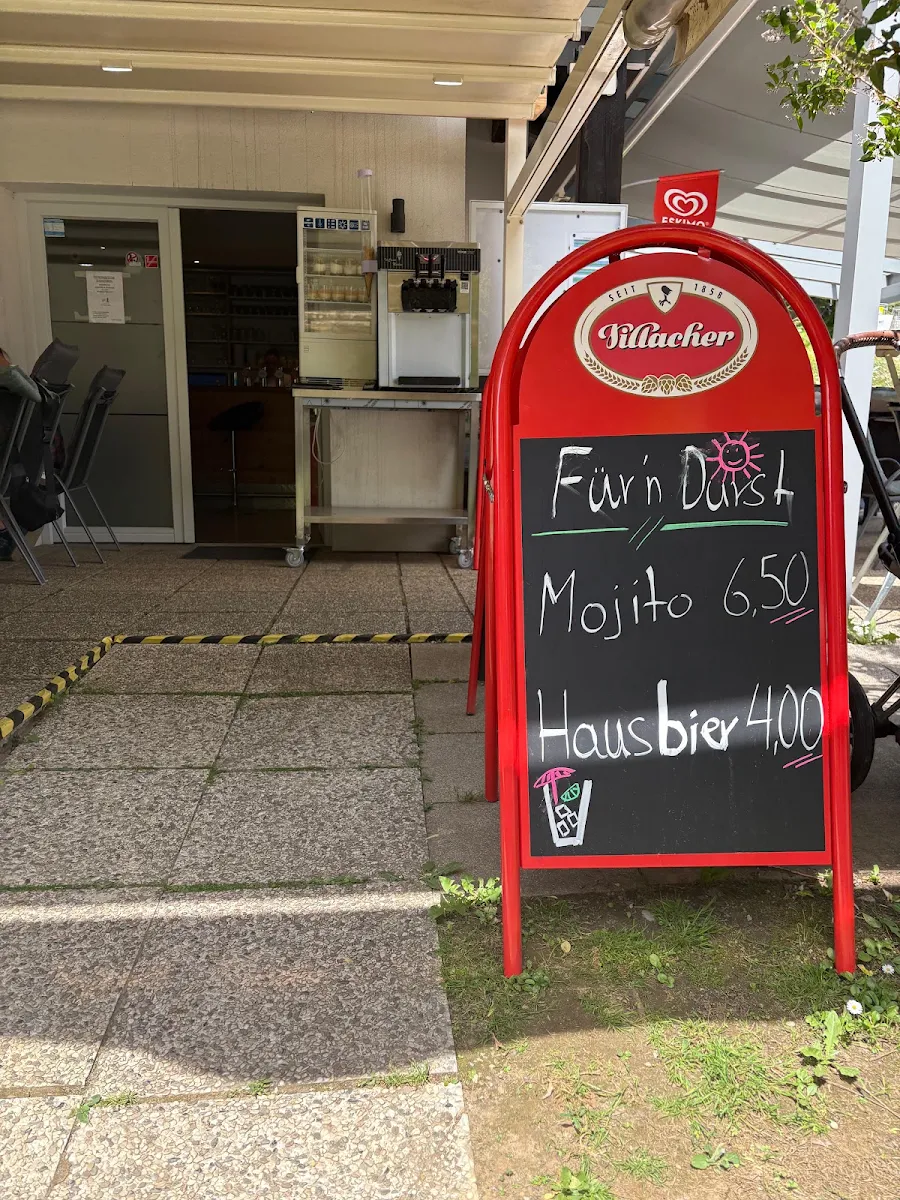 ESKIMO
SEIT 1858
Villacher
Für'n Durst
Mojito 6,50
Hausbier 4,00